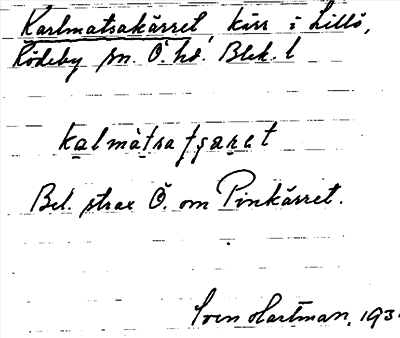 Karlmatsakärret, kärr i Lillö,
Rödeby sn. Ö. hd. Blek. l
Bel. strax Ö. om Pinkärret.
Sven Hartman, 193